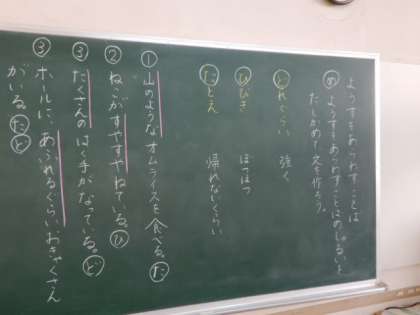 ようすをあらわすことば
め ようすをあらわすことばのしゅるいを
たしかめて文を作ろう。
どれくらい 強く
ひびき ぽつぽつ
たとえ 帰れないくらい
① 山のようなオムライスを食べる。た
② ねこがすやすやねている。ひ
③ たくさんのはく手がなっている。ど
③ ホールに、あふれるぐらいおきゃくさん
がいる。たど